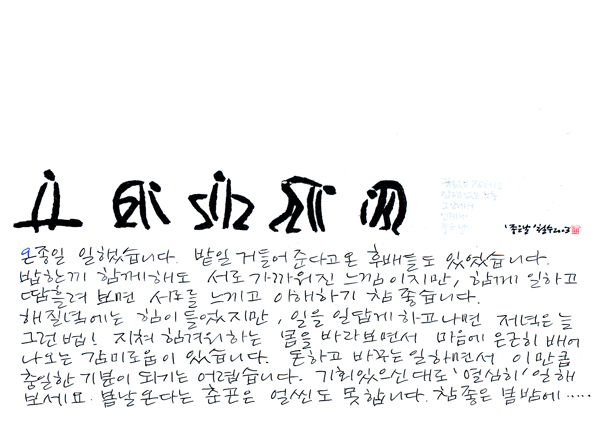 '좋은날' 철수 2003
온종일 일했습니다. 밭일 거들어 준다고 온 후배들도 있었습니다.
밥한끼 함께해도 서로 가까워진 느낌이지만, 함께 일하고
땀흘려 보면 서로를 느끼고 이해하기 참 좋습니다.
해질녘에는 힘이 들었지만, 일을 일답게 하고나면 저녁은 늘
그런 법! 지쳐 힘겨워하는 몸을 바라보면서 마음에 은근히 배어
나오는 감미로움이 있습니다. 돈하고 바꾸는 일하면서 이만큼
충일한 기분이 되기는 어렵습니다. 기회있으신대로 '열심히' 일해
보세요. 봄날 온다는 춘곤은 얼씬도 못합니다. 참 좋은 봄밤에.....